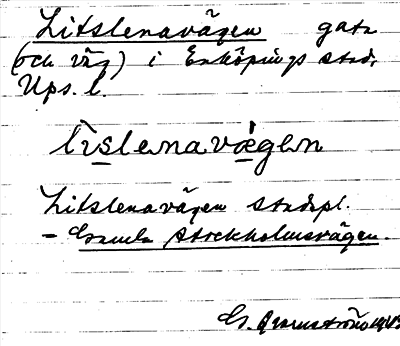 Litslenavägen gata
(och väg) i Enköpings stad,
Ups. l.
lislenavägen
Litslenavägen stadspl.
- Gamla Stockholmsvägen.
G.